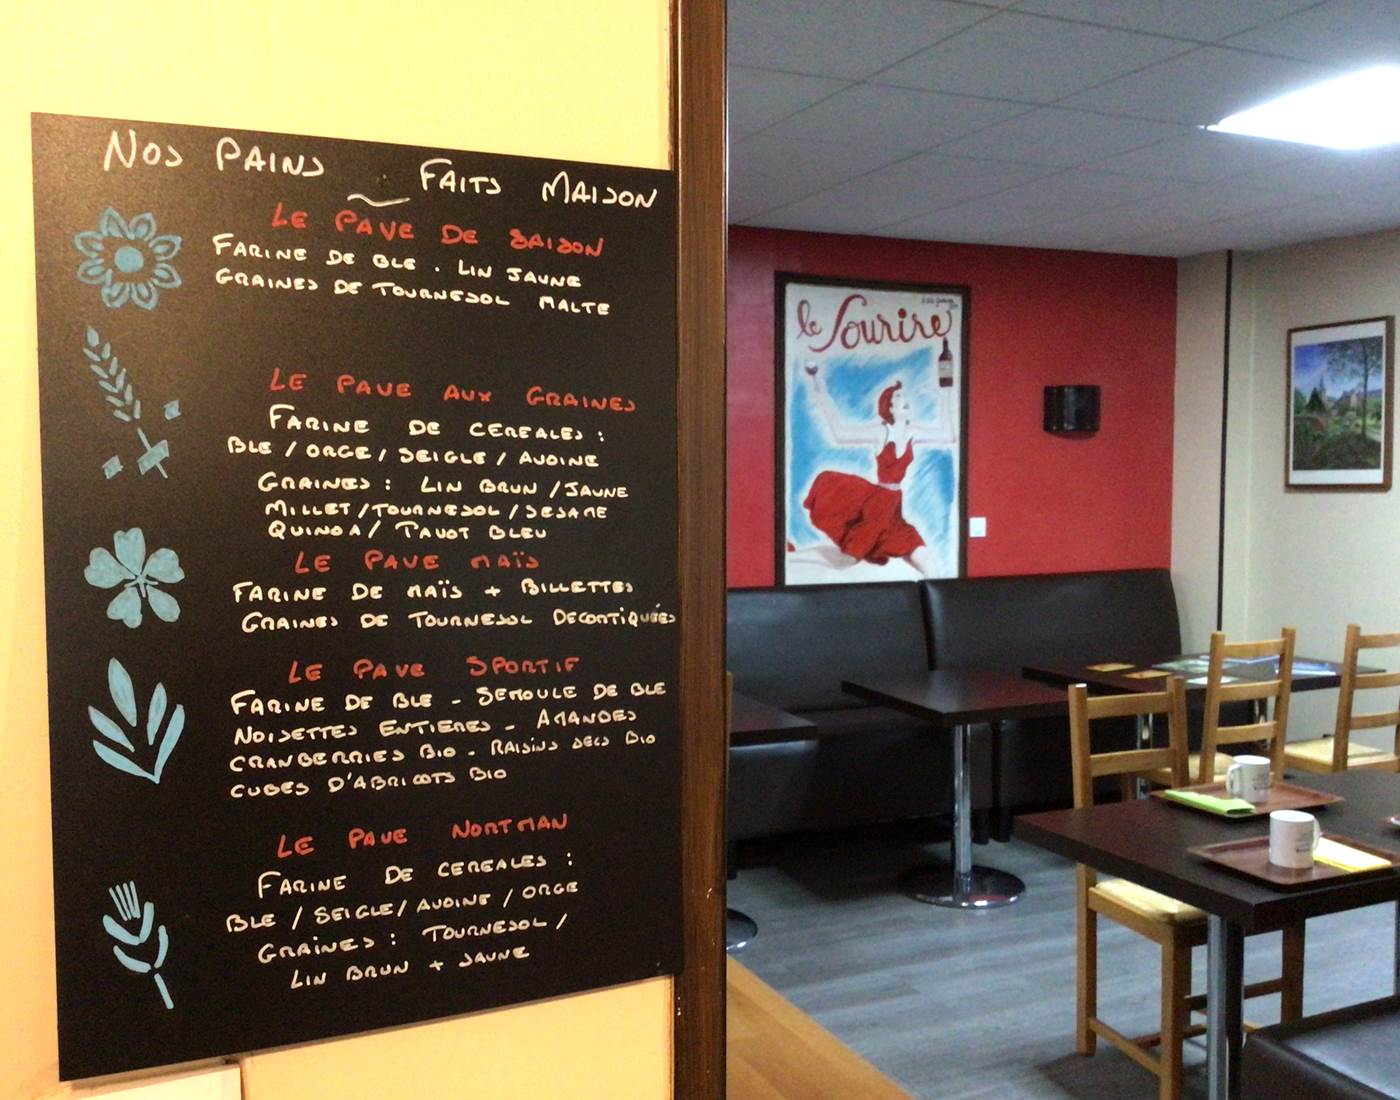 NOS PAINS FAITS MAISON
LE PAVE DE SAISON
FARINE DE BLE . LIN JAUNE
GRAINES DE TOURNESOL MALTE
LE PAVE AUX GRAINES
FARINE DE CEREALES :
BLE / ORGE / SEIGLE / AVOINE
GRAINES : LIN BRUN / JAUNE
MILLET / TOURNESOL / SESAME
QUINOA / PAVOT BLEU
LE PAVE MAÏS
FARINE DE MAÏS + BILLETTES
GRAINES DE TOURNESOL DECORTIQUÉES
LE PAVE SPORTIF
FARINE DE BLE - SEMOULE DE BLE
NOISETTES ENTIERES - AMANDES
CRANBERRIES BIO - RAISINS SECS BIO
CUBES D'ABRICOTS BIO
LE PAVE NORTMAN
FARINE DE CEREALES :
BLE / SEIGLE / AVOINE / ORGE
GRAINES : TOURNESOL /
LIN BRUN + JAUNE
le Sourire